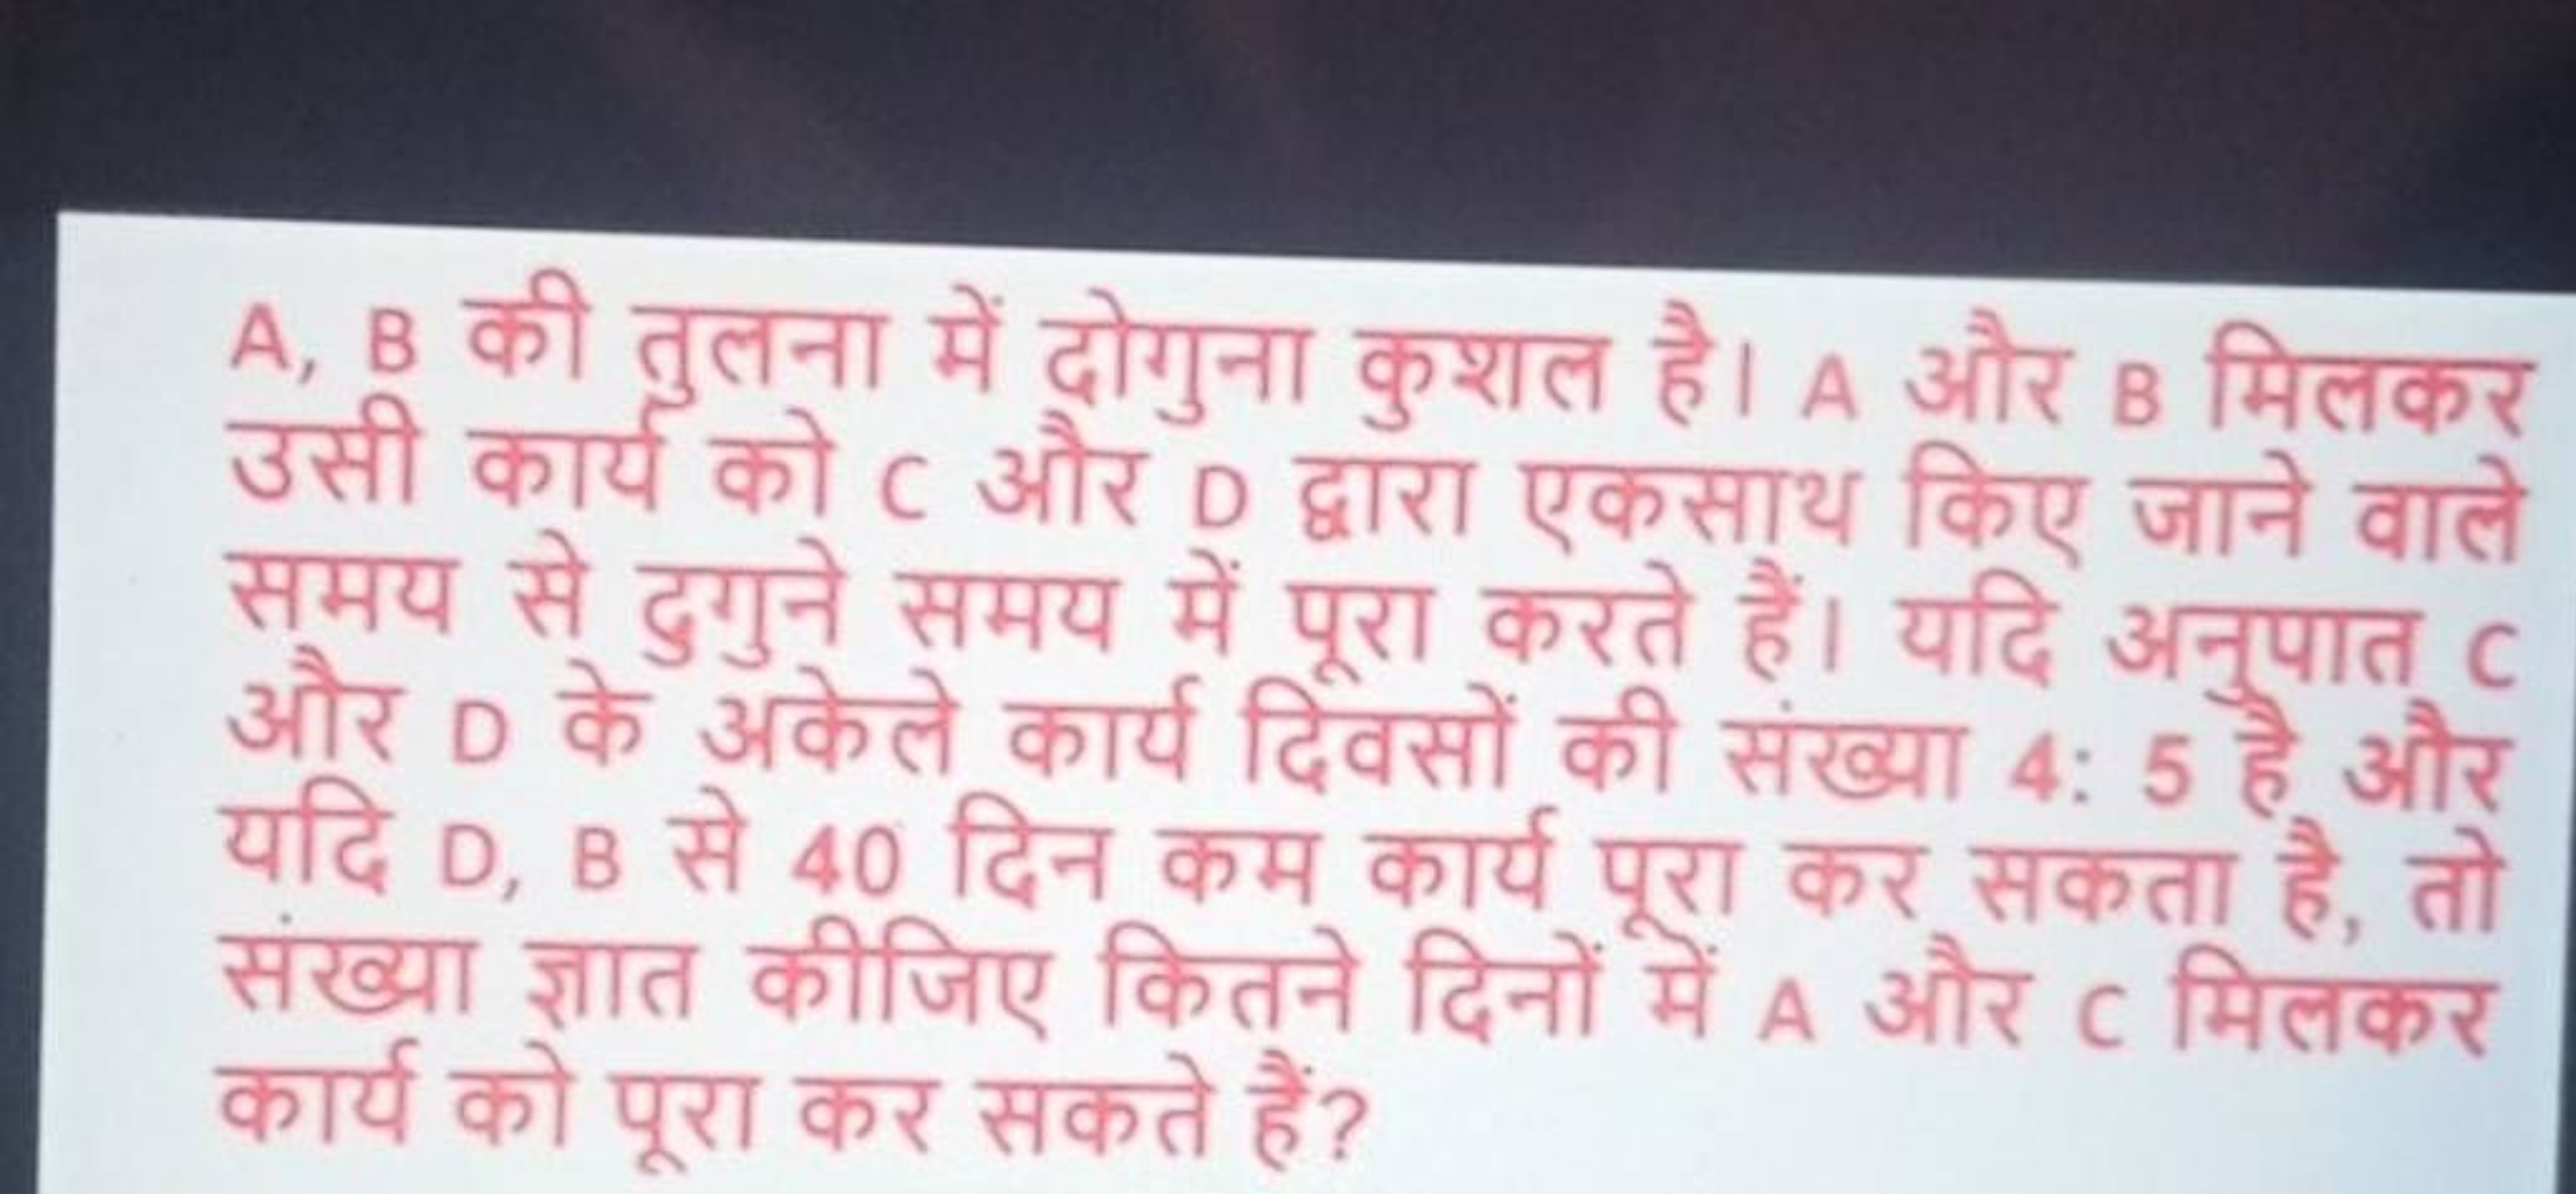 A, B की तुलना में दोगुना कुशल है। A और B मिलकर
उसी कार्य को C और D द्वारा एकसाथ किए जाने वाले
समय से दुगुने समय में पूरा करते हैं। यदि अनुपात C
और D के अकेले कार्य दिवसों की संख्या 4: 5 है और
यदि D, B से 40 दिन कम कार्य पूरा कर सकता है, तो
संख्या ज्ञात कीजिए कितने दिनों में A और C मिलकर
कार्य को पूरा कर सकते हैं?